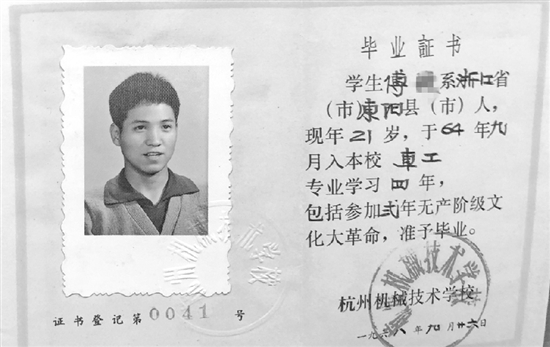 毕业証书
学生傅 系浙江省
（市）東阳县（市）人，
現年21岁，于64年九
月入本校 車工
专业学习四年，
包括参加弍年无产阶级文
化大革命，准予毕业。
杭州机械技术学校
一九六八年九月廿六日
证书登记第0041号